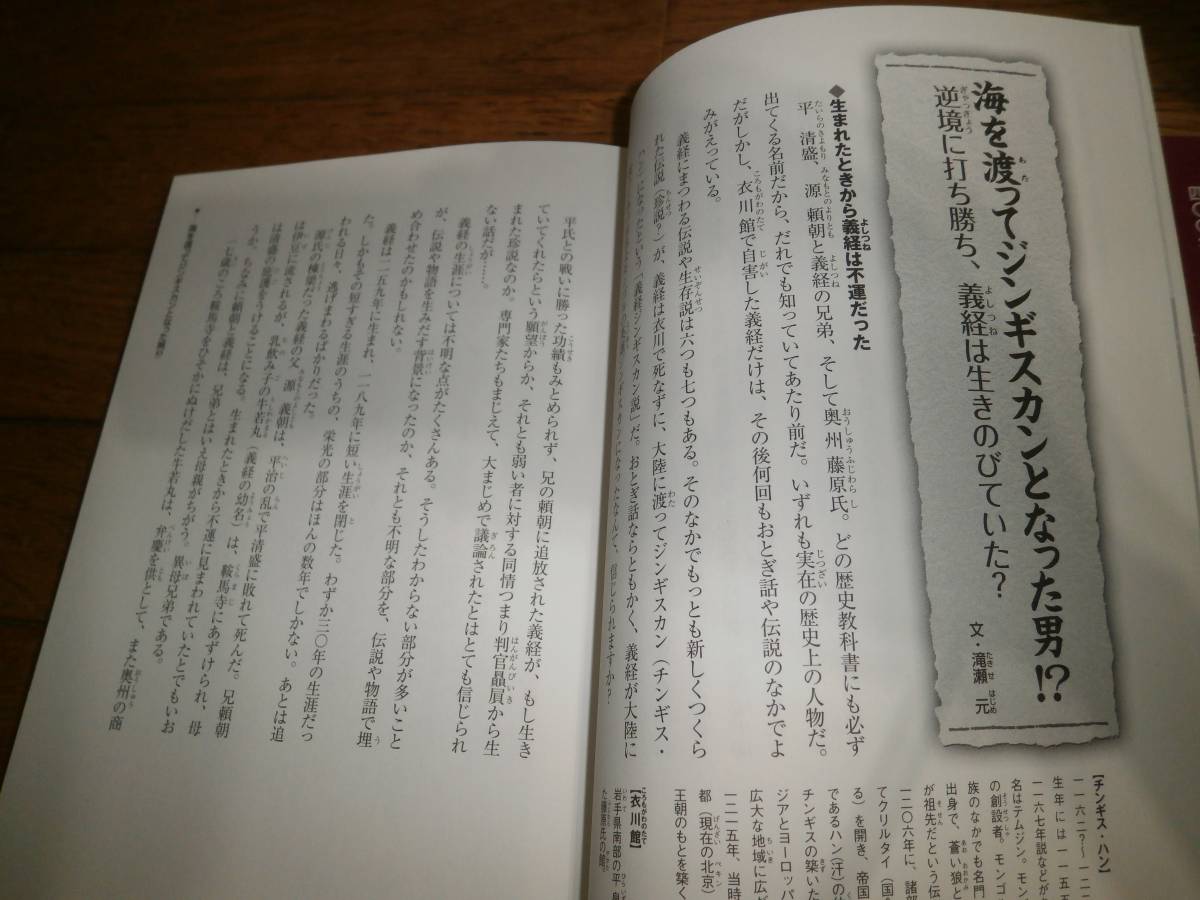 海を渡ってジンギスカンとなった男!?
逆境に打ち勝ち、義経は生きのびていた?
文・滝瀬 元
◆生まれたときから義経は不運だった
平 清盛、源 頼朝と義経の兄弟、そして奥州藤原氏。どの歴史教科書にも必ず
出てくる名前だから、だれでも知っていてあたり前だ。いずれも実在の歴史上の人物だ。
だがしかし、衣川館で自害した義経だけは、その後何回もおとぎ話や伝説のなかでよ
みがえっている。
義経にまつわる伝説や生存説は六つも七つもある。そのなかでもっとも新しくつくら
れた伝説(珍説?)が、義経は衣川で死なずに、大陸に渡ってジンギスカン(チンギス・
になったという「義経ジンギスカン説」だ。おとぎ話ならともかく、義経が大陸に
信じられますか?
【チンギス・ハン】
一一六二?〜一二二
生年には一一五五
一一六七年説などが
名はテムジン。モン
の創設者。モンゴ
族のなかでも名門
出身で、蒼い狼と
が祖先だという伝
一二〇六年に、諸部
てクリルタイ(国
る)を開き、帝国
であるハン(汗)の
チンギスの築いた
ジアとヨーロッパ
広大な地域に広が
一二二五年、当時
都(現在の北京)
王朝のもとを築く
【衣川館】
岩手県南部の平泉
た藤原氏の館。
平氏との戦いに勝った功績もみとめられず、兄の頼朝に追放された義経が、もし生き
ていてくれたらという願望からか、それとも弱い者に対する同情つまり判官贔屓から生
まれた珍説なのか。専門家たちもまじえて、大まじめで議論されたとはとても信じられ
ない話だが……。
義経の生涯については不明な点がたくさんある。そうしたわからない部分が多いこと
が、伝説や物語を生みだす背景になったのか、それとも不明な部分を、伝説や物語で埋
め合わせたのかもしれない。
義経は一一五九年に生まれ、一一八九年に短い生涯を閉じた。わずか三〇年の生涯だっ
た。しかもその短すぎる生涯のうちの、栄光の部分はほんの数年でしかない。あとは追
われる日々、逃げまわるばかりだった。
源氏の棟梁だった義経の父 源 義朝は、平治の乱で平清盛に敗れて死んだ。兄頼朝
は伊豆に流されるが、乳飲み子の牛若丸(義経の幼名)は、鞍馬寺にあずけられ、母
は清盛の庇護をうけることになる。生まれたときから不運に見まわれていたとでもいお
うか。ちなみに頼朝と義経は、兄弟とはいえ母親がちがう。異母兄弟である。
七歳のころ鞍馬寺をひそかにぬけだした牛若丸は、弁慶を供として、また奥州の商